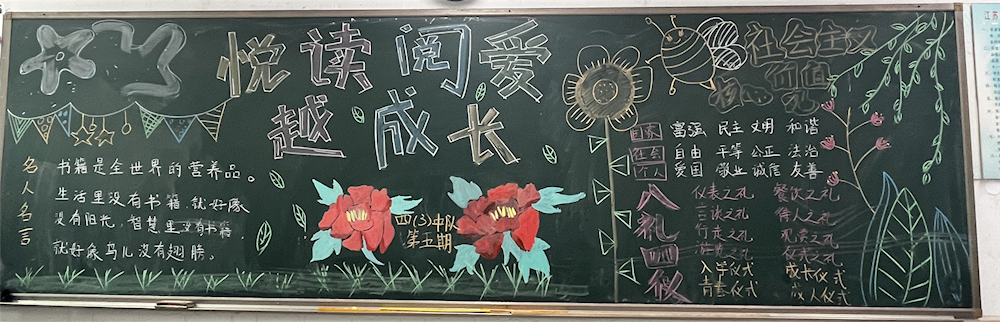 悦读阅爱
越成长
名人名言
书籍是全世界的营养品。
生活里没有书籍,就好像
没有阳光,智慧里没有书籍,
就好像鸟儿没有翅膀。
四(3)中队
第五期
社会主义
核心价值观
国家 富强 民主 文明 和谐
社会 自由 平等 公正 法治
个人 爱国 敬业 诚信 友善
八礼四仪
仪表之礼 餐饮之礼
言谈之礼 待人之礼
行走之礼 观赏之礼
游览之礼 仪式之礼
入学仪式 成长仪式
青春仪式 成人仪式
江苏